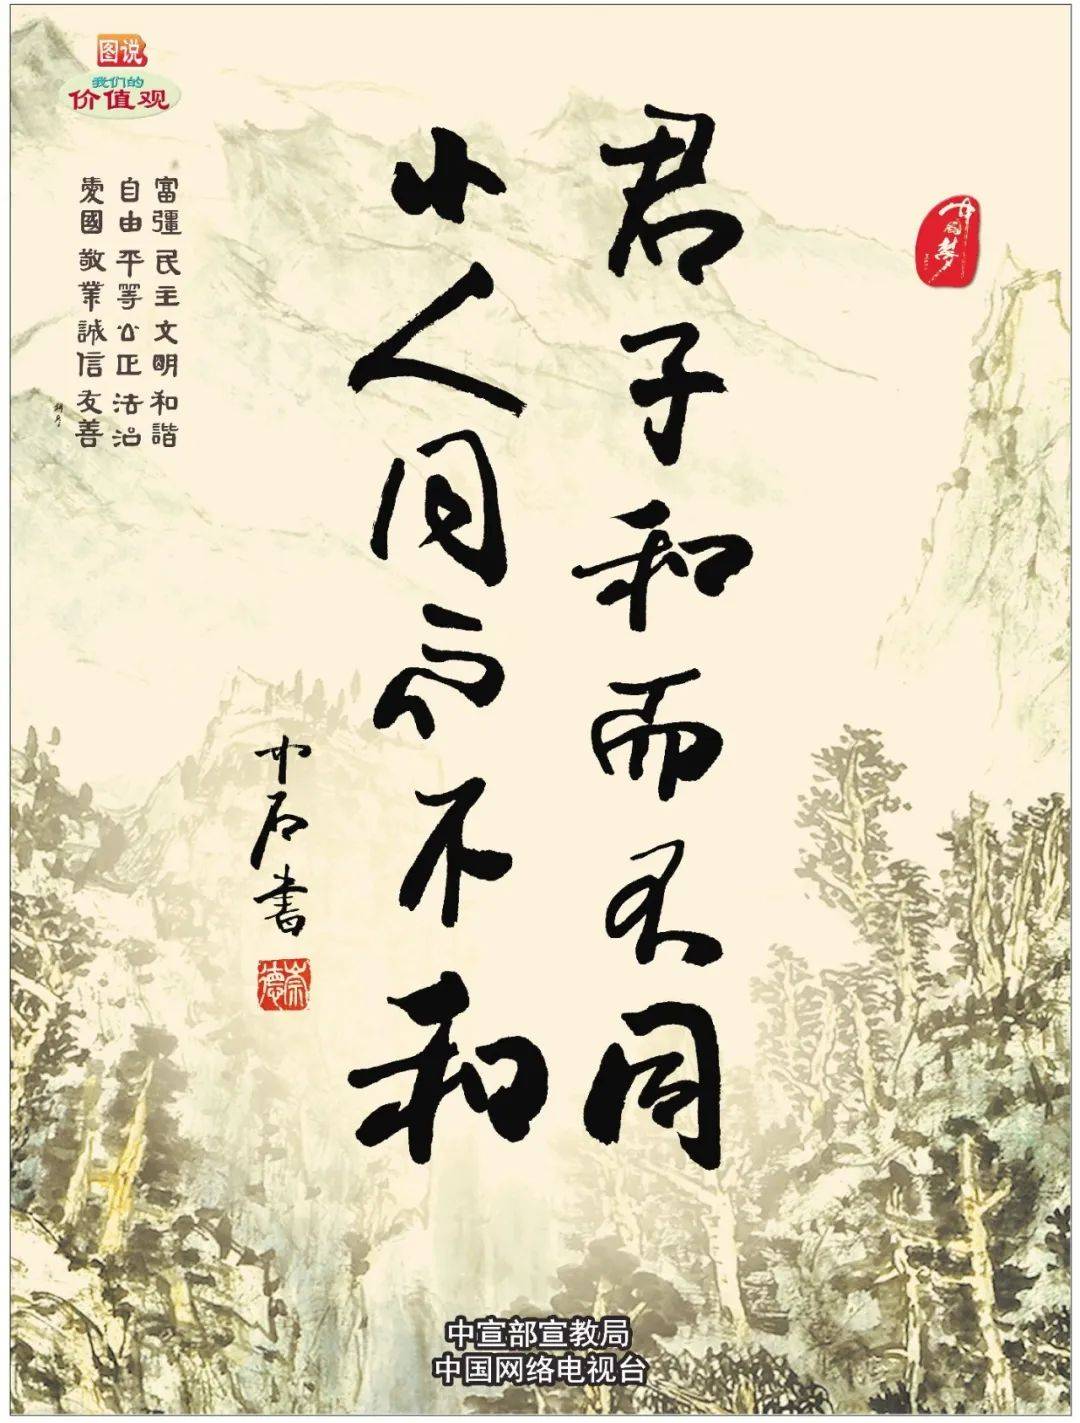 图说
我们的
价值观
富彊民主文明和諧
自由平等公正法治
愛國敬業誠信友善
中国梦
君子和而不同
小人同而不和
中石书
崇德
中宣部宣教局
中国网络电视台